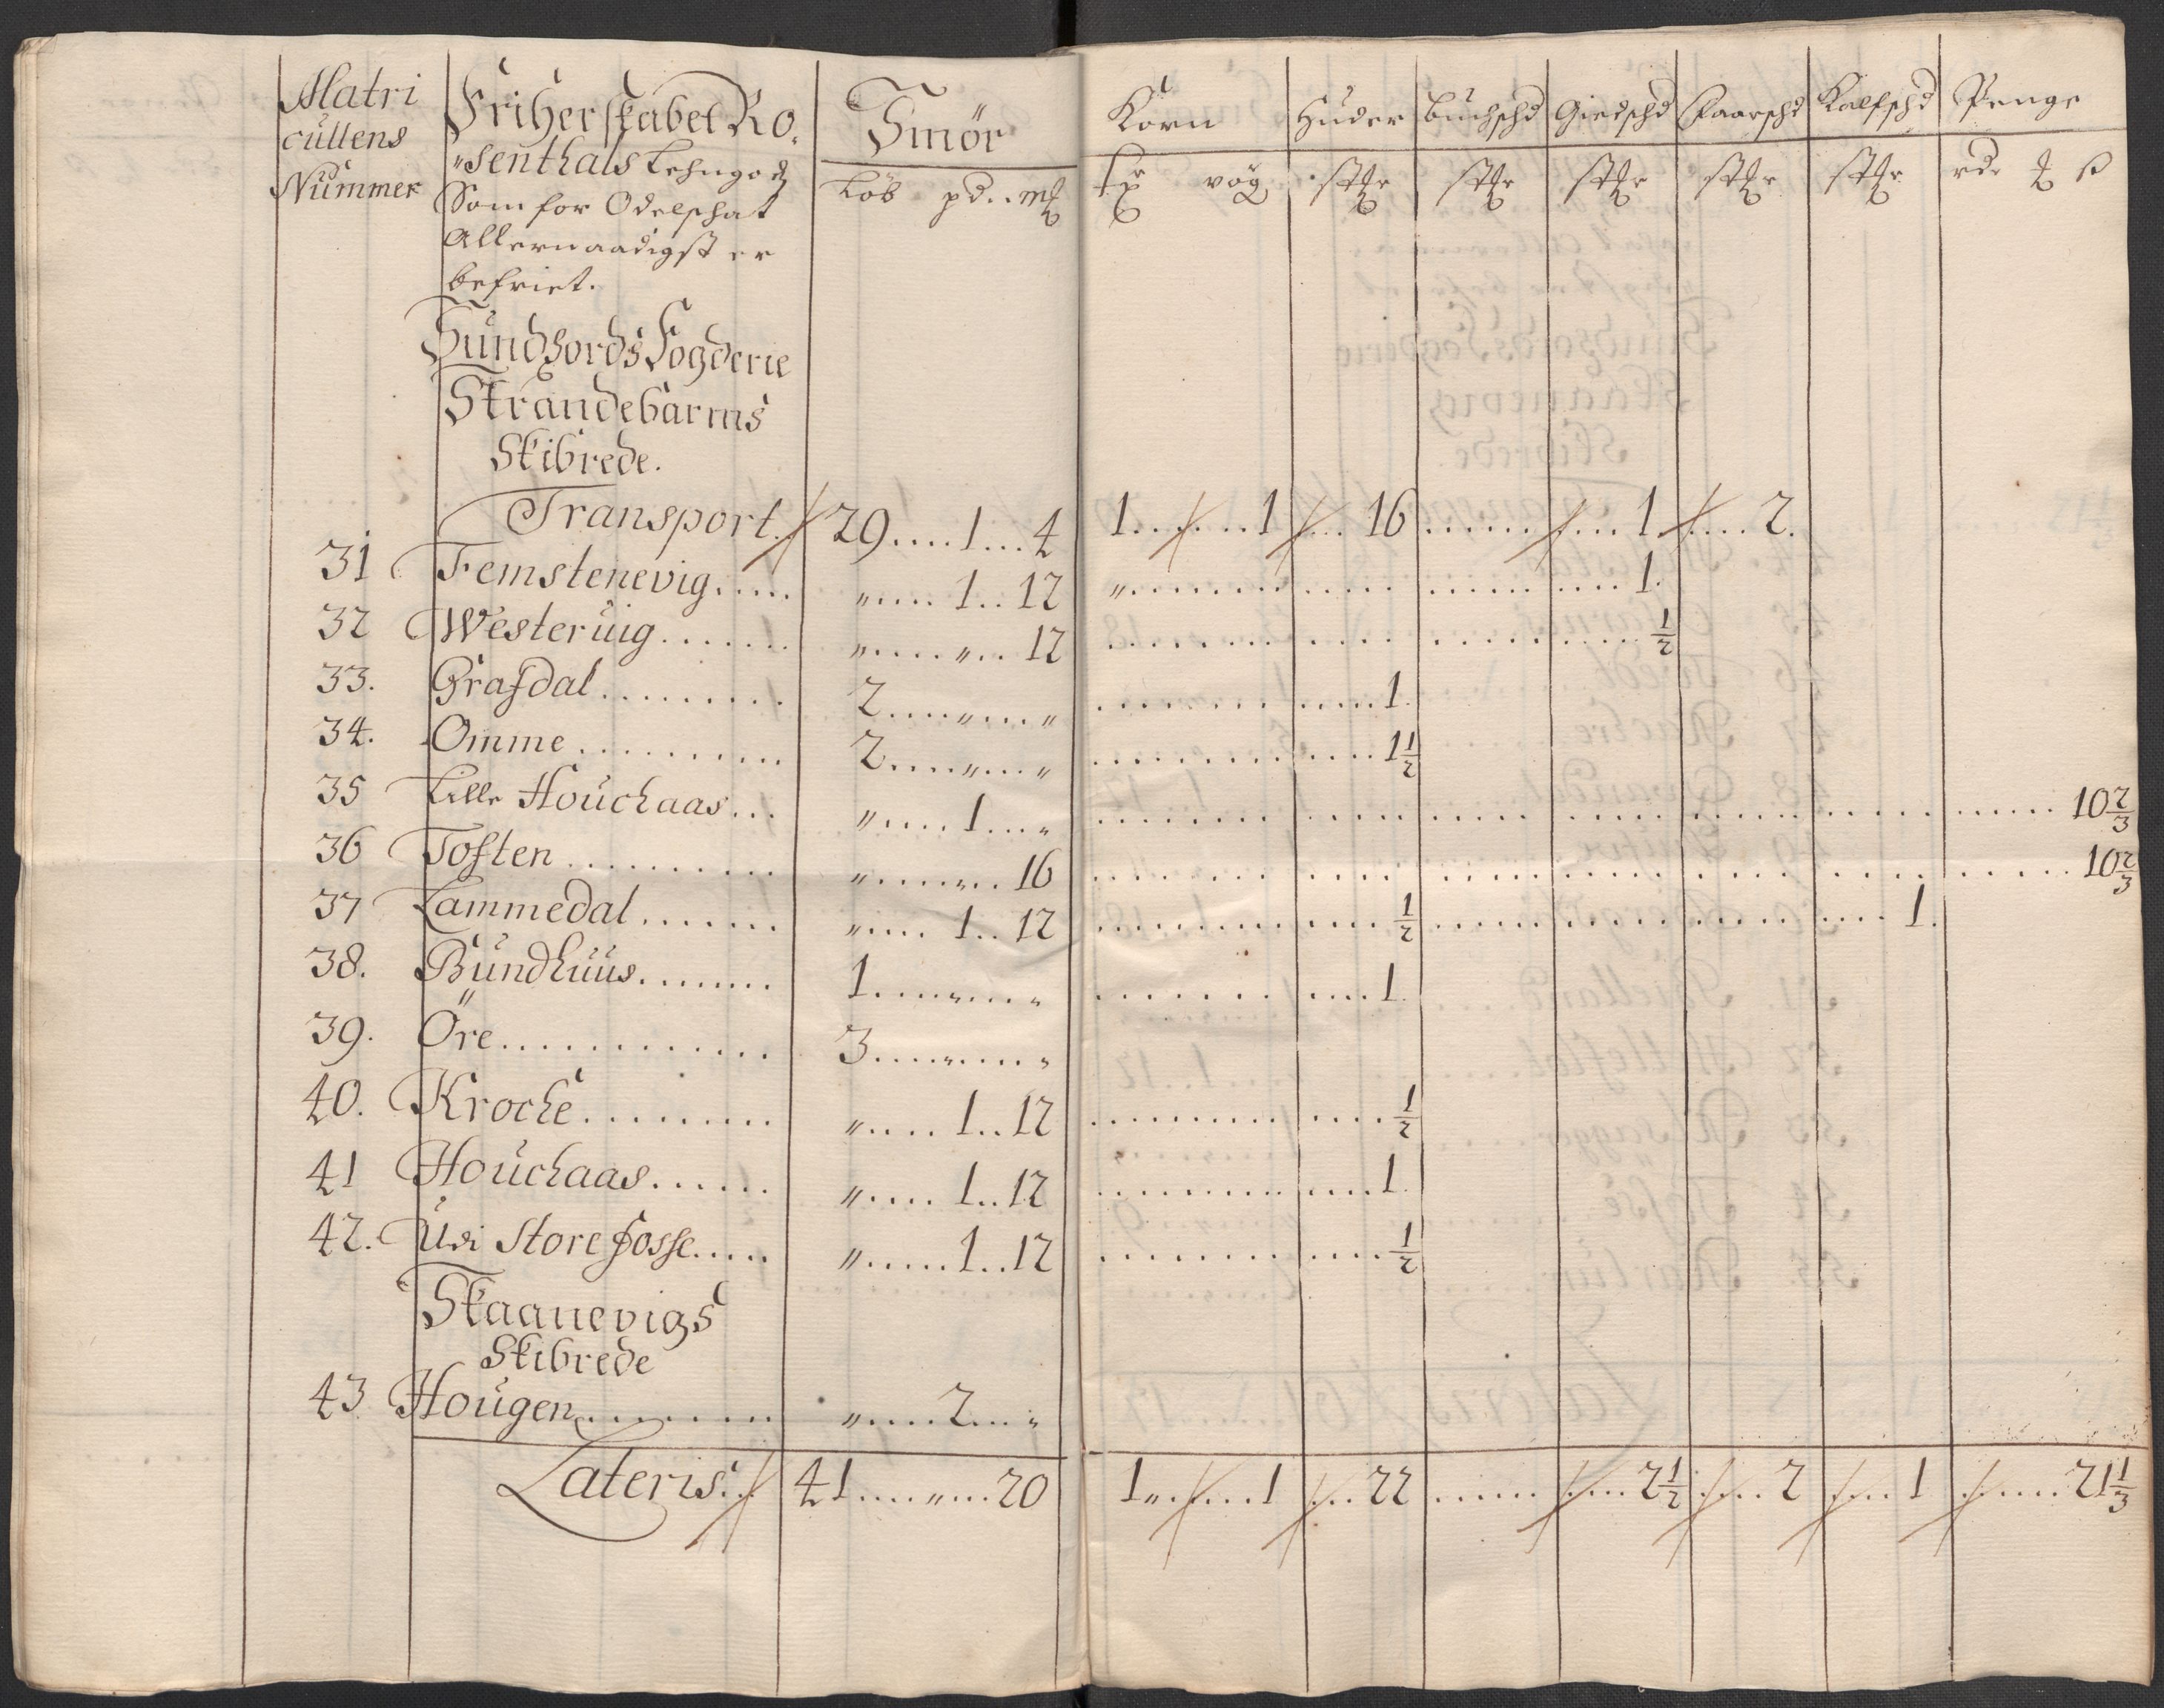 Matri
cullens
Nummer
Friherskabet Ro,
"senthals Lehngodz
Som for Odelschat
Allernaadigst er
befriet.
Smör
Löb pd.. m&
Korn Huder Buchschd Giedschd Faarschd Kalfschd Penge
vog rdr ß
Sundhords Fogderie
Strandebarms
Skibrede.
Transport. 29....1...4 1......1 ...16 ...... ....1 ....2.
31 Femstenevig..... "....1..12 "........ ..... ...... ....1.
32 Westeruig...... "...."..12 ........ .... ...... ....½
33. Grafdal........ 2...."...." ....... .....1.
34. Omme.......... 2...."...." ......... ....1½
35 Lille Houchaas... "....1...." ........ ..... ...... ..... ...... ..... ......10⅔
36 Toften.......... "....."..16 ........ .... ...... ..... .... .... ......10⅔
37 Lammedal....... "....1..12 ......... ....½ ...... ...... ..... ....1.
38. Bundhuus....... 1....."...." ....... ....1.
39. Öre............ 3....."...."
40. Kroche......... "....1..12 ......... ....½
41 Houchaas...... "....1..12 ......... ....1.
42. Udi Store Fosse..... "....1..12 ........ ....½
Skaanevigs
Skibrede
43 Hougen......... "....2...."
Lateris... 41...."....20 1"......1 ...22 ...... ....2½ ....2 ....1 ......21⅓